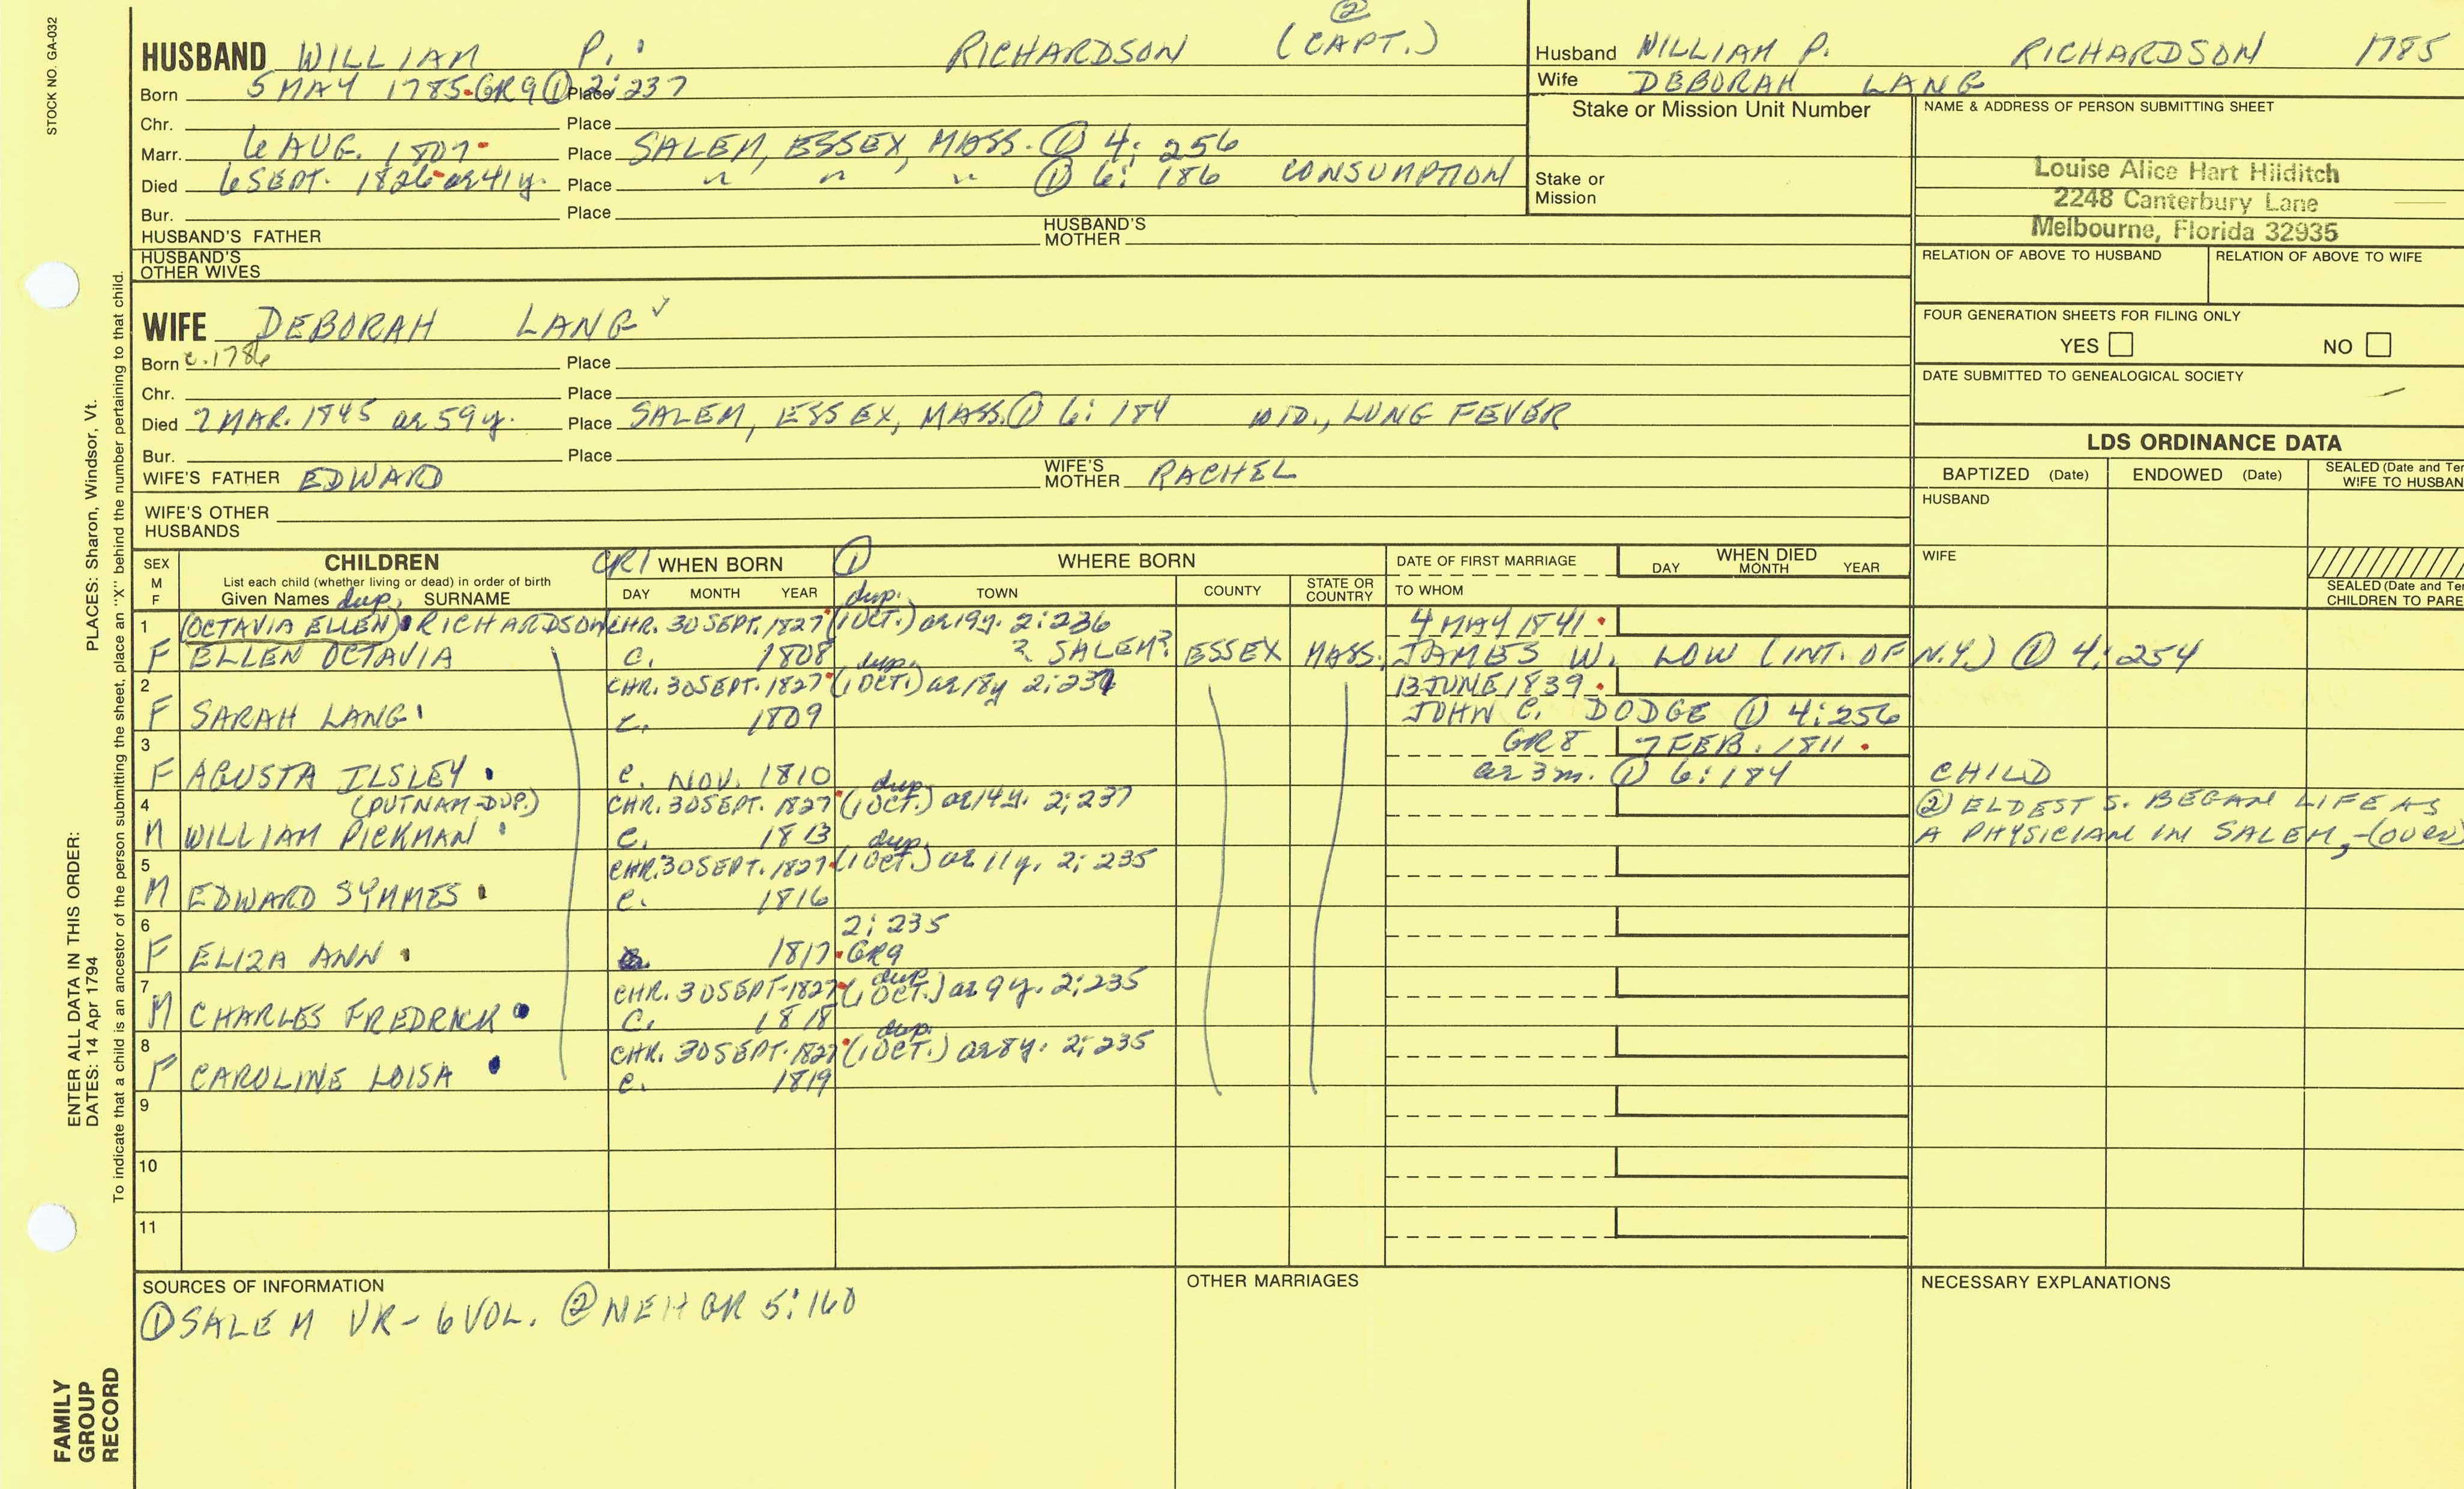 STOCK NO. GA-032
HUSBAND WILLIAM P. RICHARDSON (CAPT.) ②
Born 5 MAY 1785 GR9 ① Place 2:237
Chr. Place
Marr. 6 AUG. 1807 Place SALEM, ESSEX, MASS. ① 4: 256
Died 6 SEPT. 1826 ae 41 y. Place " " " ① 6: 186 CONSUMPTION
Bur. Place
HUSBAND'S FATHER HUSBAND'S MOTHER
HUSBAND'S OTHER WIVES
WIFE DEBORAH LANG ✓
Born c. 1786 Place
Chr. Place
Died 7 MAR. 1845 ae 59 y. Place SALEM, ESSEX, MASS. ① 6: 184 WID., LUNG FEVER
Bur. Place
WIFE'S FATHER EDWARD WIFE'S MOTHER RACHEL
WIFE'S OTHER HUSBANDS
Husband WILLIAM P. RICHARDSON 1785
Wife DEBORAH LANG
Stake or Mission Unit Number
Stake or Mission
NAME & ADDRESS OF PERSON SUBMITTING SHEET
Louise Alice Hart Hilditch
2248 Canterbury Lane
Melbourne, Florida 32935
RELATION OF ABOVE TO HUSBAND RELATION OF ABOVE TO WIFE
FOUR GENERATION SHEETS FOR FILING ONLY
YES NO
DATE SUBMITTED TO GENEALOGICAL SOCIETY
LDS ORDINANCE DATA
BAPTIZED (Date) ENDOWED (Date) SEALED (Date and Ter
WIFE TO HUSBAN
HUSBAND
WIFE
SEALED (Date and Te
CHILDREN TO PARE
SEX M F CHILDREN CR1 WHEN BORN ① WHERE BORN DATE OF FIRST MARRIAGE WHEN DIED
List each child (whether living or dead) in order of birth
Given Names dup. SURNAME DAY MONTH YEAR dup. TOWN COUNTY STATE OR COUNTRY TO WHOM DAY MONTH YEAR
1 (OCTAVIA ELLEN) RICHARDSON CHR. 30 SEPT. 1827 (1 OCT.) ae 19 y. 2:236 4 MAY 1841
F ELLEN OCTAVIA c. 1808 ? SALEM? ESSEX MASS. JAMES W. LOW (INT. OF N.Y.) ① 4: 254
2 CHR. 30 SEPT. 1827 dup. (1 OCT.) ae 18 y 2:237 13 JUNE 1839
F SARAH LANG c. 1809 JOHN C. DODGE ① 4:256
3 GR8 7 FEB. 1811
F AGUSTA ILSLEY c. NOV. 1810 ae 3 m. ① 6:184 CHILD
4 (PUTNAM-DUP.) CHR. 30 SEPT. 1827 dup. (1 OCT.) ae 14 y. 2:237 ② ELDEST S. BEGAN LIFE AS
M WILLIAM PICKMAN c. 1813 A PHYSICIAN IN SALEM,-(OVER)
5 CHR. 30 SEPT. 1827 dup. (1 OCT.) ae 11 y. 2:235
M EDWARD SYMMES c. 1816
6 2:235
F ELIZA ANN 1817 GR9
7 CHR. 30 SEPT. 1827 dup. (1 OCT.) ae 9 y. 2:235
M CHARLES FREDRICK c. 1818
8 CHR. 30 SEPT. 1827 dup. (1 OCT.) ae 8 y. 2:235
F CAROLINE LOISA c. 1819
9
10
11
SOURCES OF INFORMATION OTHER MARRIAGES NECESSARY EXPLANATIONS
① SALEM VR - 6 VOL. ② NEHGR 5:160
ENTER ALL DATA IN THIS ORDER:
DATES: 14 Apr 1794 PLACES: Sharon, Windsor, Vt.
To indicate that a child is an ancestor of the person submitting the sheet, place an "X" behind the number pertaining to that child.
FAMILY
GROUP
RECORD